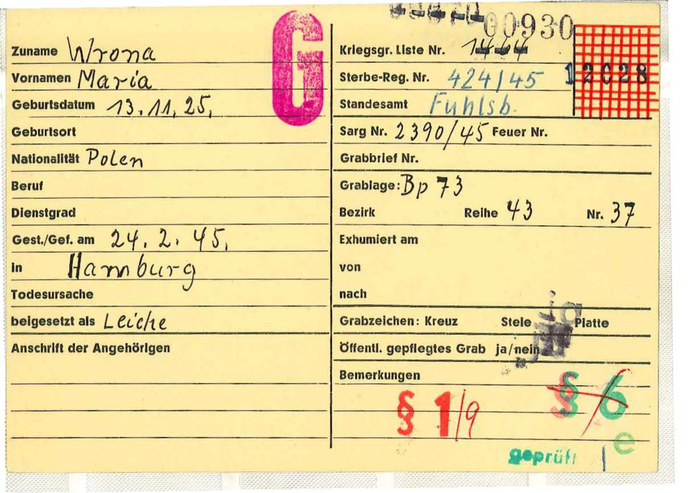 Zuname Wrona
Vornamen Maria
Geburtsdatum 13.11.25.
Geburtsort
Nationalität Polen
Beruf
Dienstgrad
Gest./Gef. am 24.2.45.
in Hamburg
Todesursache
beigesetzt als Leiche
Anschrift der Angehörigen
G
00930
Kriegsgr. Liste Nr.
12028
Sterbe-Reg. Nr. 424/45
Standesamt Fuhlsb.
Sarg Nr. 2390/45 Feuer Nr.
Grabbrief Nr.
Grablage: Bp 73
Bezirk Reihe 43 Nr. 37
Exhumiert am
von
nach
Grabzeichen: Kreuz Stele Platte
Öffentl. gepflegtes Grab ja/nein
Bemerkungen
§ 1/9 § 6
e
geprüft